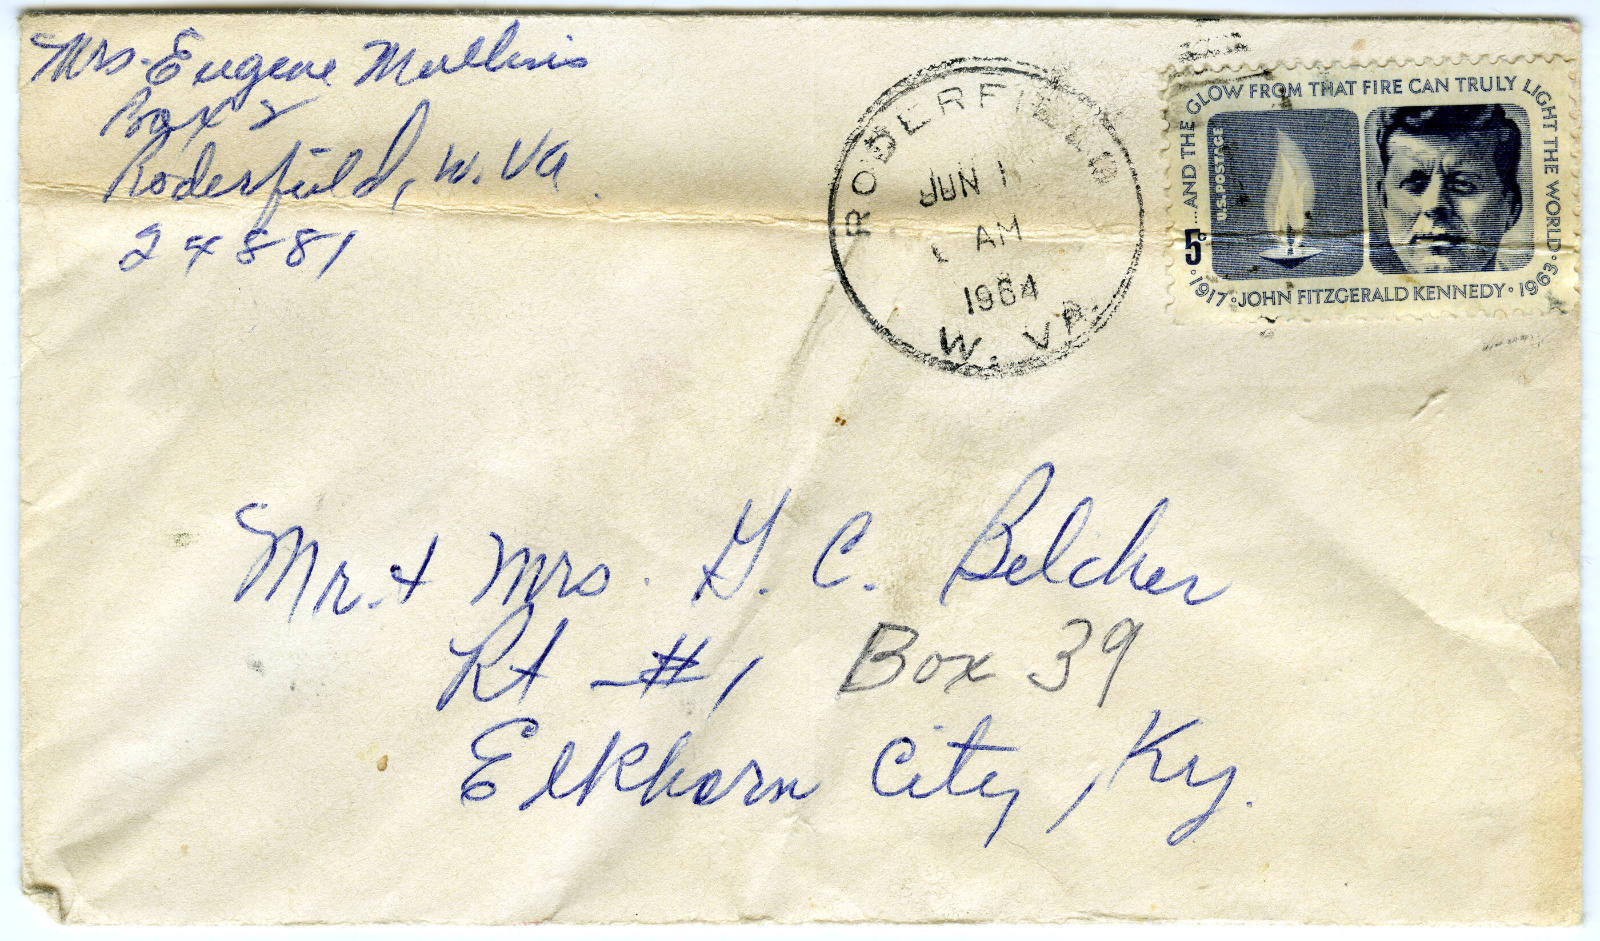 Mrs. Eugene Mullins
Box 2
Roderfield, W. Va.
24881
RODERFIELD
JUN 1
AM
1964
W. VA.
...AND THE GLOW FROM THAT FIRE CAN TRULY LIGHT THE WORLD
U.S. POSTAGE
5c
1917 · JOHN FITZGERALD KENNEDY · 1963
Mr. & Mrs. G. C. Belcher
Rt #1 Box 39
Elkhorn City, Ky.